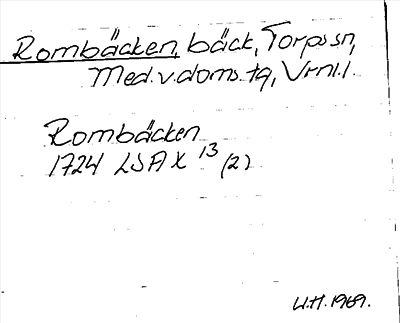 Rombäcken, bäck, Torps sn,
Med. v. doms. tg, Vrnl. l.
Rombäcken
1724 LSA X 13 (2)
U.H. 1969.